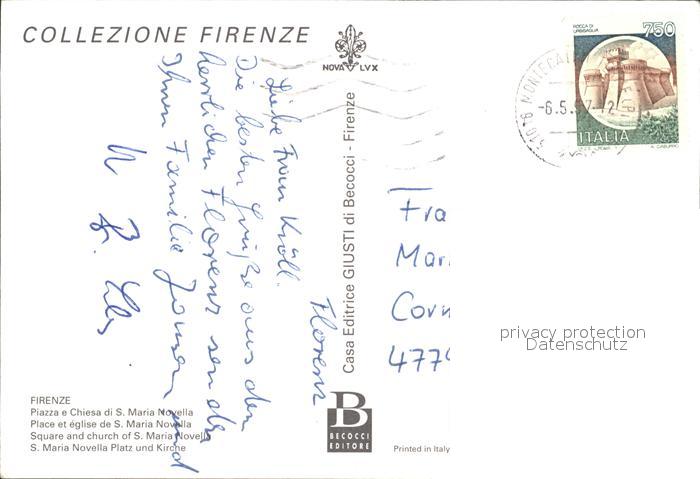 COLLEZIONE FIRENZE
NOVA LVX
ROCCA DI URBISAGLIA
750
ITALIA
-6.5.97-12
Florenz
Liebe Frau Kröll.
Die besten Grüße aus dem
herrlichen Florenz senden
Ihnen Familie und
Casa Editrice GIUSTI di Becocci - Firenze
Fra
Mar
Corn
4779
privacy protection
Datenschutz
FIRENZE
Piazza e Chiesa di S. Maria Novella
Place et église de S. Maria Novella
Square and church of S. Maria Novella
S. Maria Novella Platz und Kirche
B
BECOCCI
EDITORE
Printed in Italy